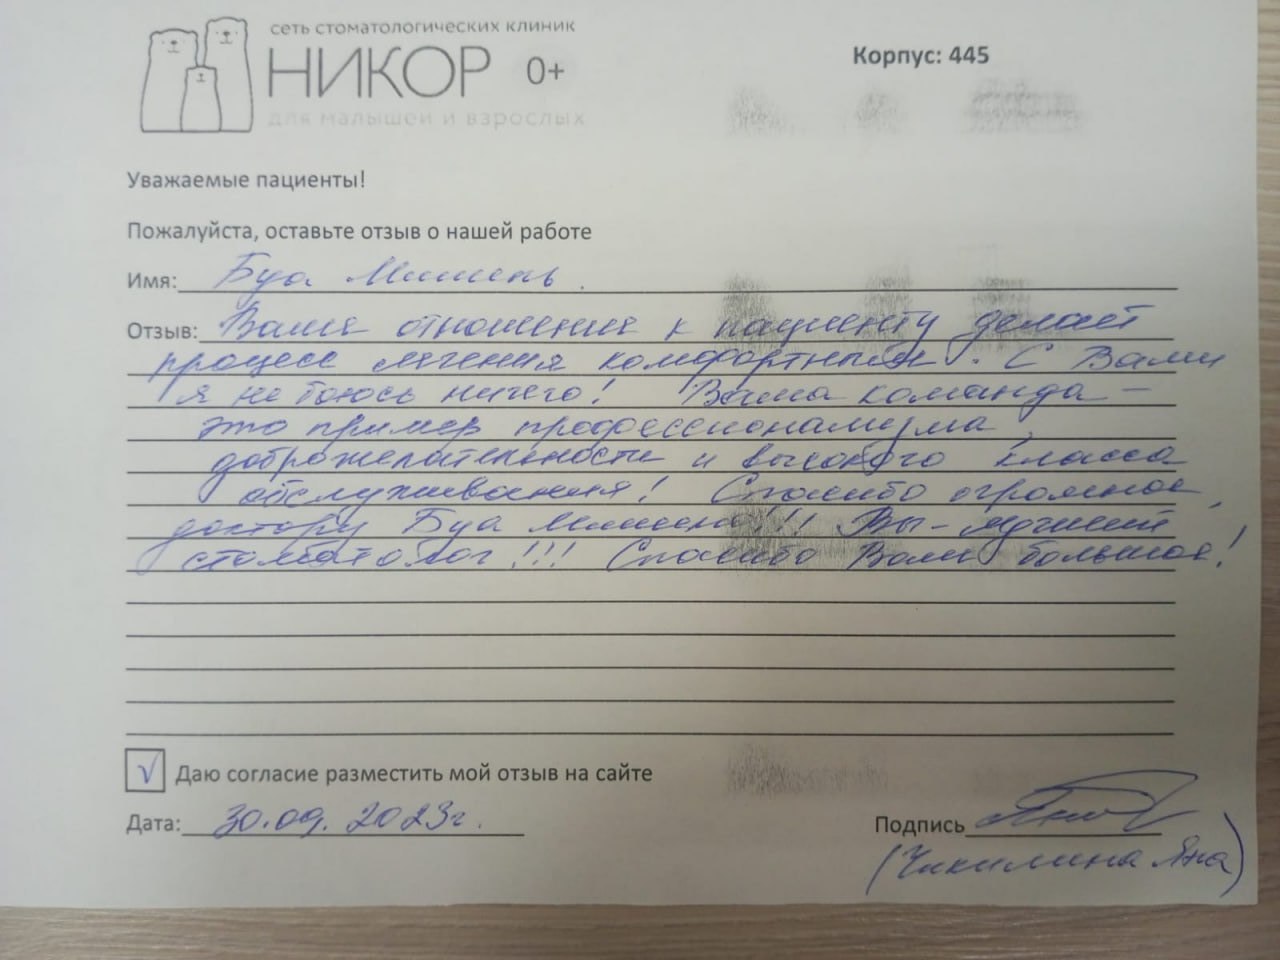 сеть стоматологических клиник
НИКОР 0+
для малышей и взрослых
Корпус: 445
Уважаемые пациенты!
Пожалуйста, оставьте отзыв о нашей работе
Имя: Буа Мишель.
Отзыв: Ваше отношение к пациенту делает
процесс лечения комфортным. С Вами
я не боюсь ничего! Ваша команда –
это пример профессионализма,
доброжелательности и высокого класса
обслуживания! Спасибо огромное,
доктору Буа Мишелю!!! Вы – лучший
стоматолог!!! Спасибо Вам большое!
√ Даю согласие разместить мой отзыв на сайте
Дата: 30.09.2023г.
Подпись
(Чикилина Яна)